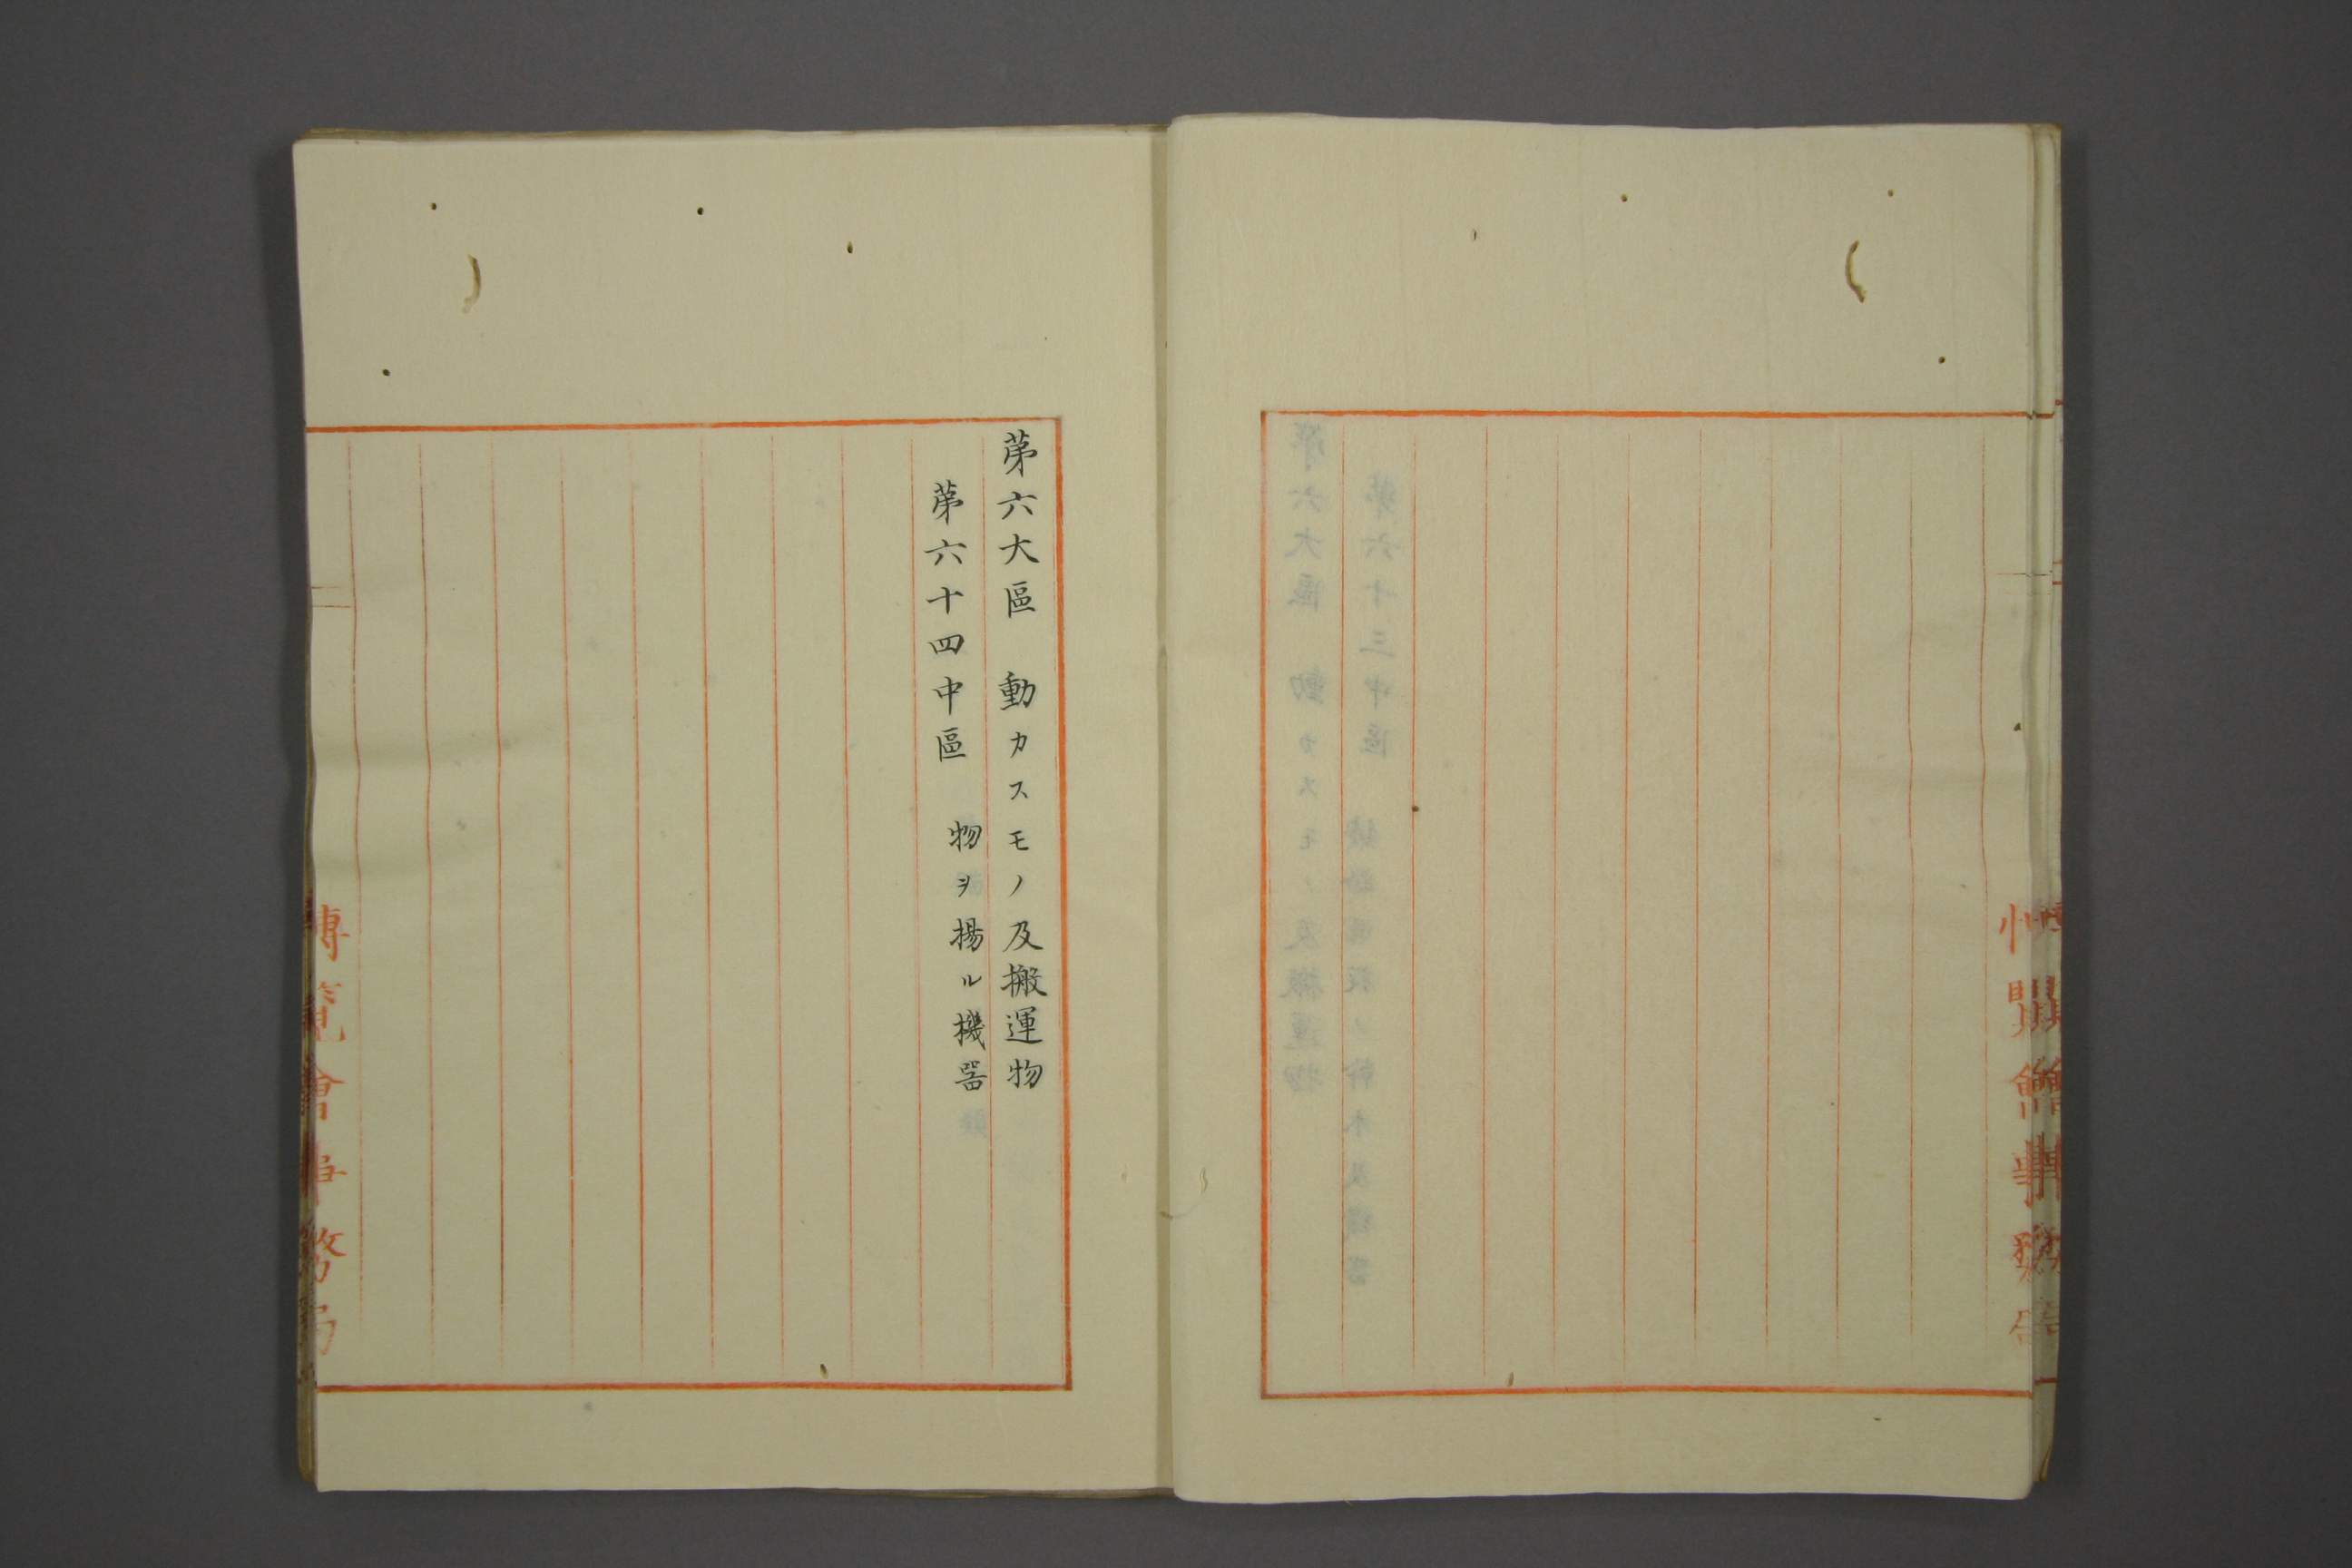 第六大區　動カスモノ及搬運物
第六十四中區　物ヲ揚ル機器
博覽會事務局